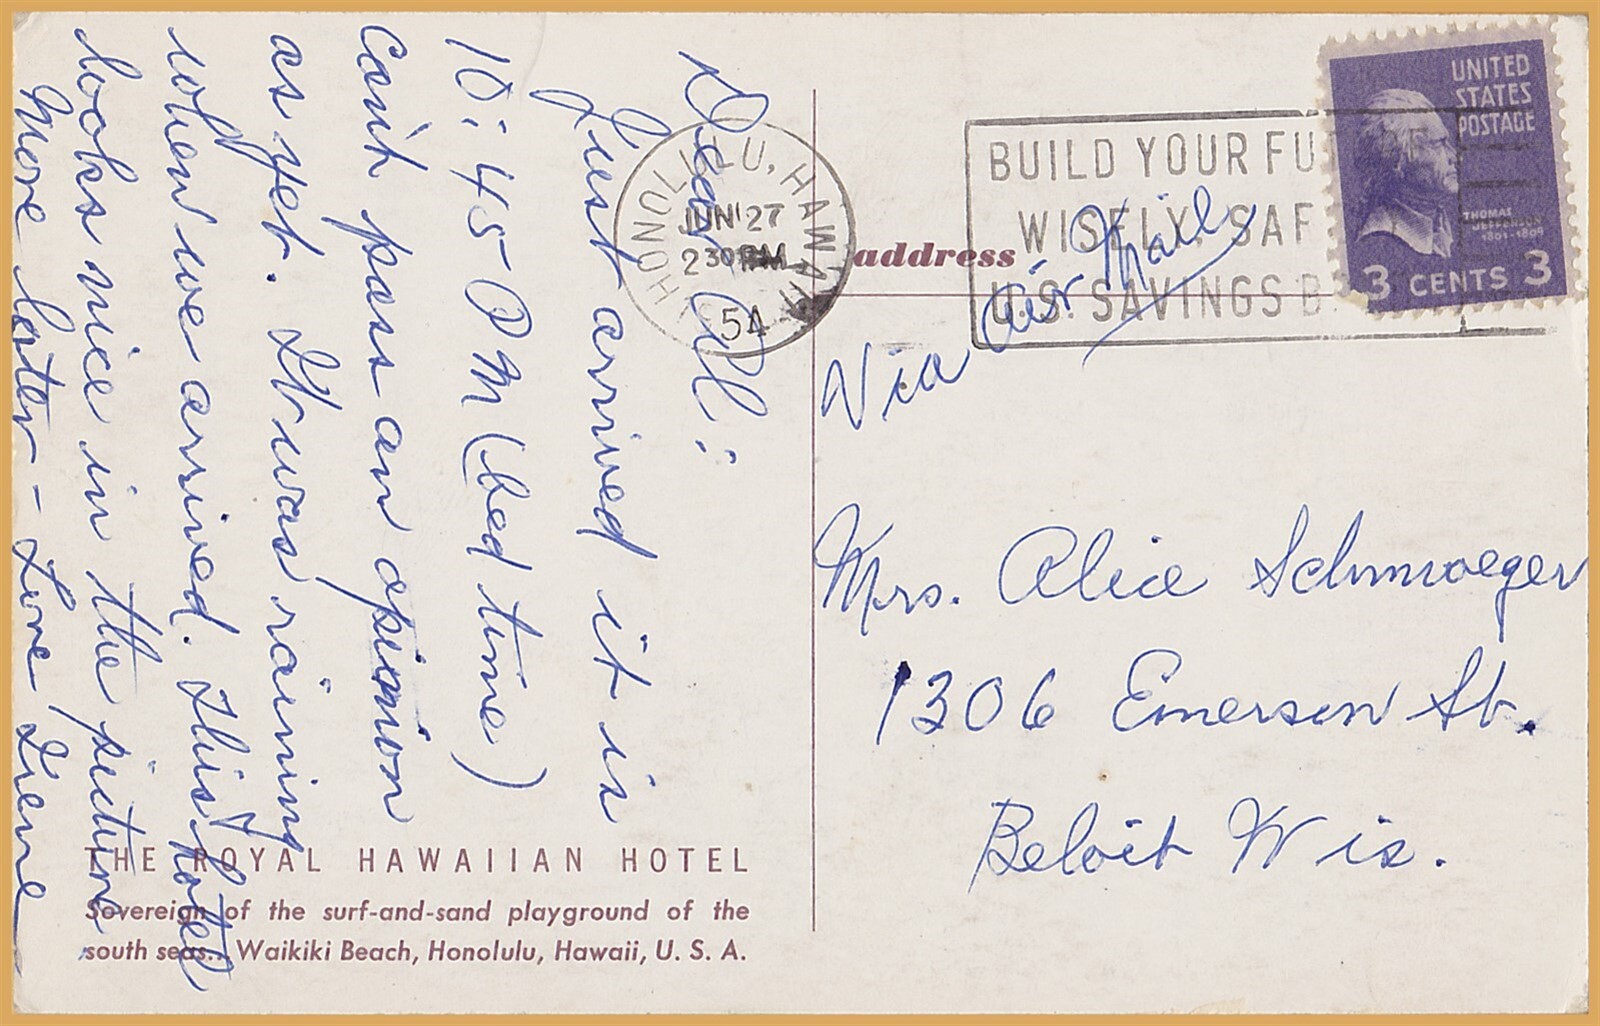 Dear All:
Just arrived it is
10:45 PM (bed time)
Can't pass an opinion
as yet. It was raining
when we arrived. This hotel
looks nice in the picture
More later - Love Irene
THE ROYAL HAWAIIAN HOTEL
Sovereign of the surf-and-sand playground of the
south seas. Waikiki Beach, Honolulu, Hawaii, U. S. A.
HONOLULU, HAWAII
JUN 27
2 30 PM
54
address
BUILD YOUR FU
WISELY, SAF
U.S. SAVINGS B
UNITED
STATES
POSTAGE
THOMAS
JEFFERSON
1801-1809
3 CENTS 3
Via Air Mail
Mrs. Alice Schmoeger
1306 Emerson St.
Beloit Wis.